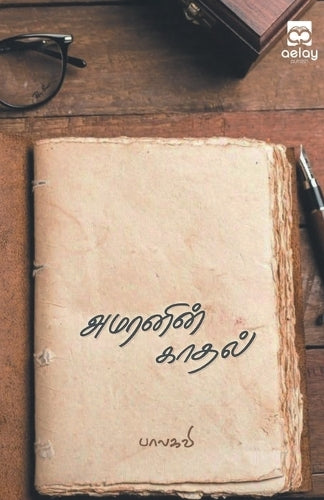 aelay
அமரனின்
காதல்
பாலகவி